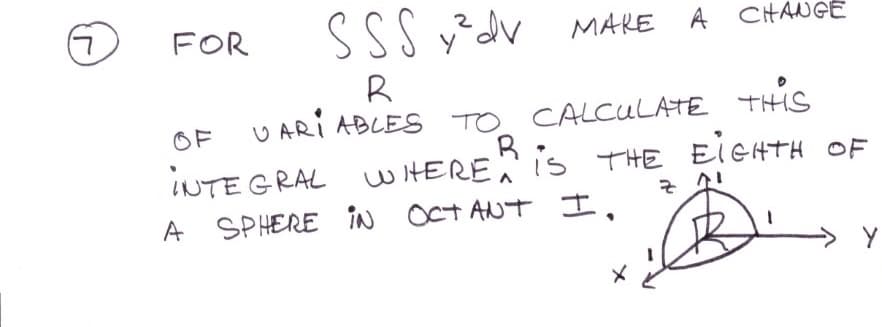 7 FOR ∫∫∫ y² dv MAKE A CHANGE
R
OF VARIABLES TO CALCULATE THIS
INTEGRAL WHERE R IS THE EIGHTH OF
A SPHERE IN OCTANT I.
z 1
R 1 Y
1
X